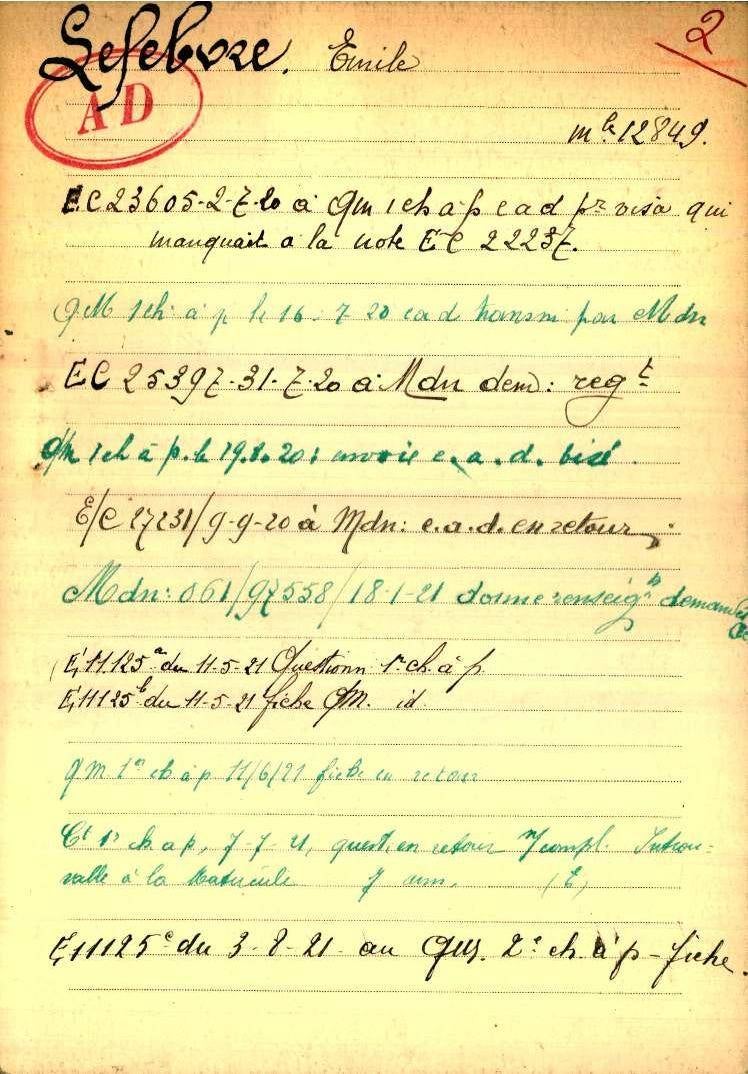 Lefebvre. Emile
2
AD
mle 12849.
EC 23605-2-7-20 à QM 1 ch à p c a d pr visa qui
manquait a la note EC 22237.
QM 1 ch à p le 16-7 20 c a d transm par Mdn
EC 25397-31-7-20 à Mdn dem: regt
QM 1 ch à p. le 19.8.20: envoie c. a. d. visé.
E/C 27231/9-9-20 à Mdn: c.a.d. en retour
Mdn: 061/97558/18-1-21 donne renseigts demandés
E, 11.125a du 11-5-21 Questionn 1r ch. à p
E, 11125b du 11-5-21 fiche QM. id
QM 1er ch à p 11/6/21 fiche en retour
Ct 1r ch à p, 7-7-21, quest. en retour compl. Introu-
vable à la Matricule (E)
E, 11125c du 3-8-21 au QM. 2e ch à p - fiche.